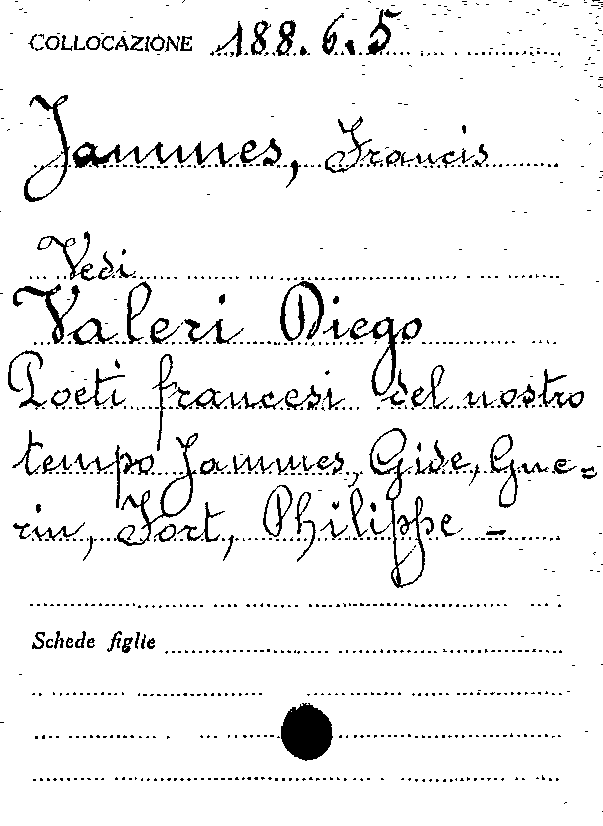 COLLOCAZIONE 188.6.5
Jammes, Francis
Vedi
Valeri Diego
Poeti francesi del nostro
tempo Jammes, Gide, Gue=
rin, Fort, Philippe -
Schede figlie